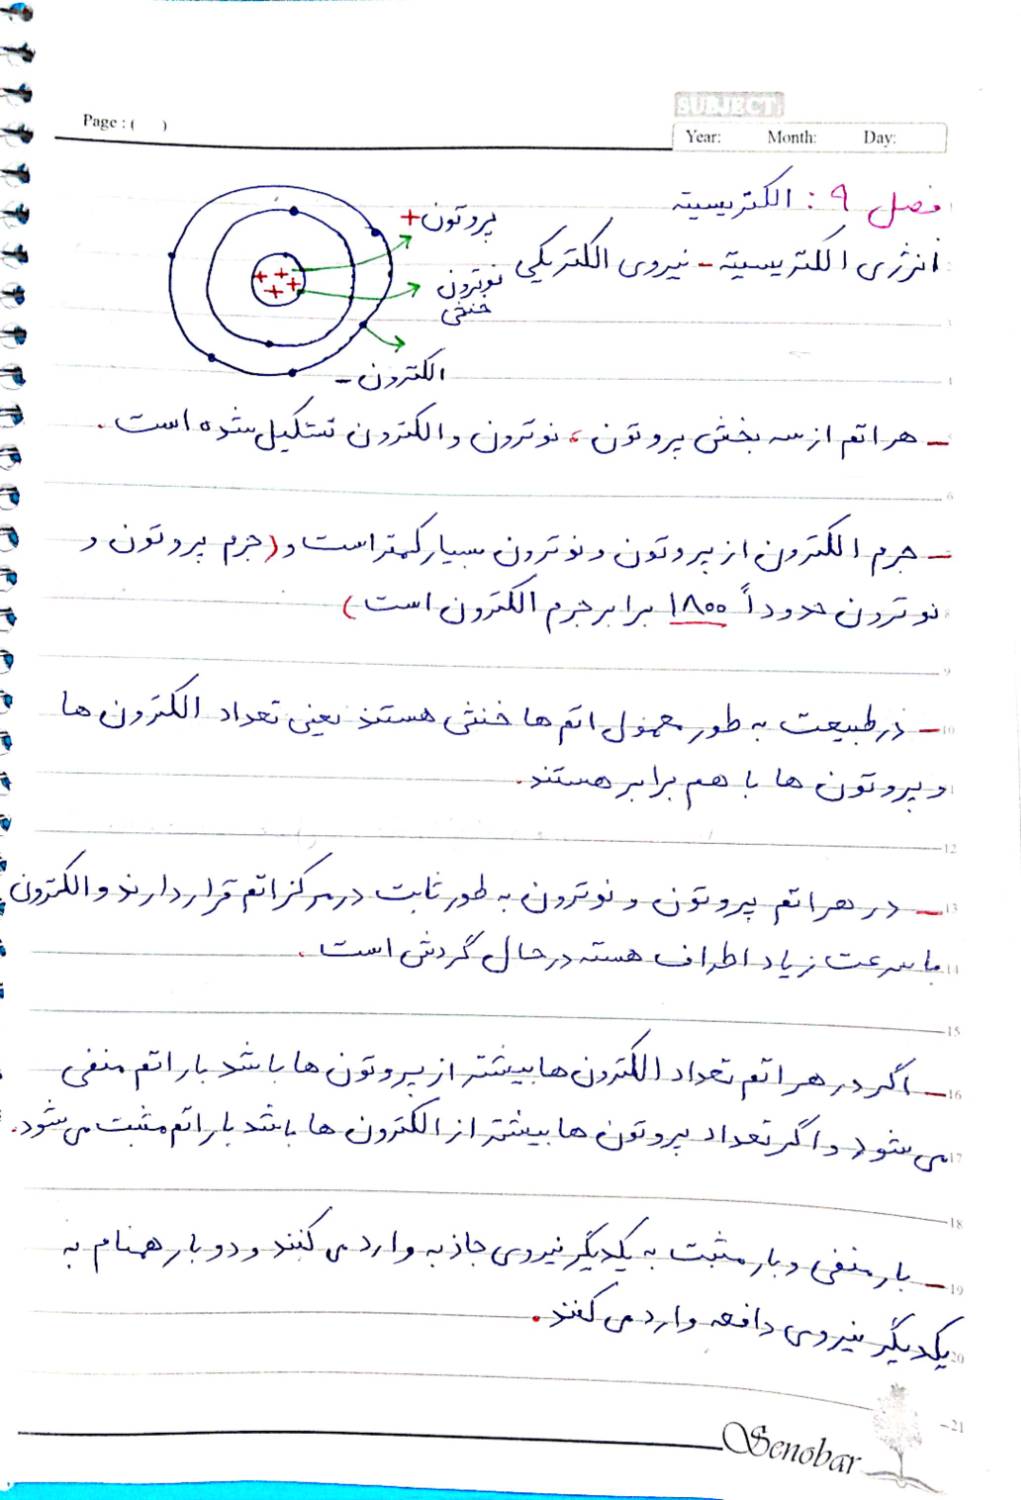 SUBJECT:
Page : ( )
Year: Month: Day:
فصل ۹ : الکتریسیته
انرژی الکتریسیته - نیروی الکتریکی
پروتون +
نوترون
خنثی
الکترون -
- هر اتم از سه بخش پروتون ، نوترون و الکترون تشکیل شده است .
- جرم الکترون از پروتون و نوترون بسیار کمتر است و (جرم پروتون و
نوترون حدوداً ۱۸۰۰ برابر جرم الکترون است )
- در طبیعت به طور معمول اتم ها خنثی هستند یعنی تعداد الکترون ها
و پروتون ها با هم برابر هستند.
- در هر اتم پروتون و نوترون به طور ثابت در مرکز اتم قرار دارند و الکترون
با سرعت زیاد اطراف هسته در حال گردش است .
- اگر در هر اتم تعداد الکترون ها بیشتر از پروتون ها باشد بار اتم منفی
می شود و اگر تعداد پروتون ها بیشتر از الکترون ها باشد بار اتم مثبت می شود.
- بار منفی و بار مثبت به یکدیگر نیروی جاذبه وارد می کنند و دو بار همنام به
یکدیگر نیروی دافعه وارد می کنند .
Senobar